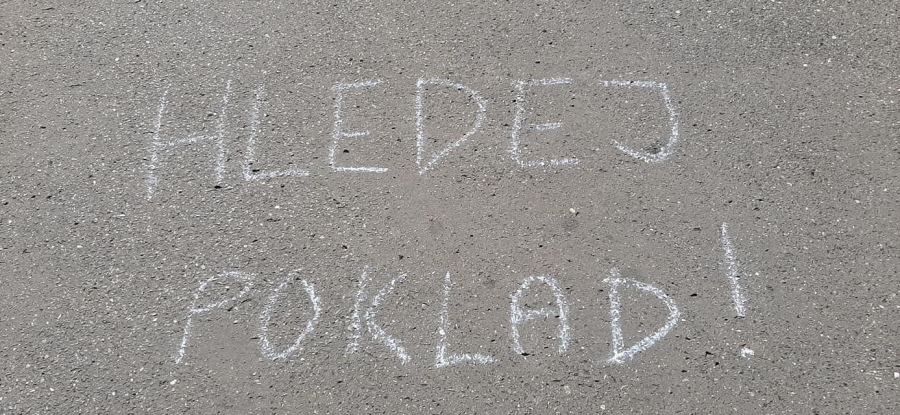 HLEDEJ
POKLAD!